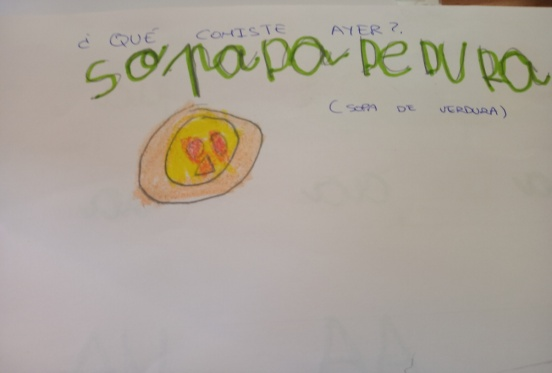 ¿ QUÉ COMISTE AYER?.
SOPADADEDURA
(SOPA DE VERDURA)